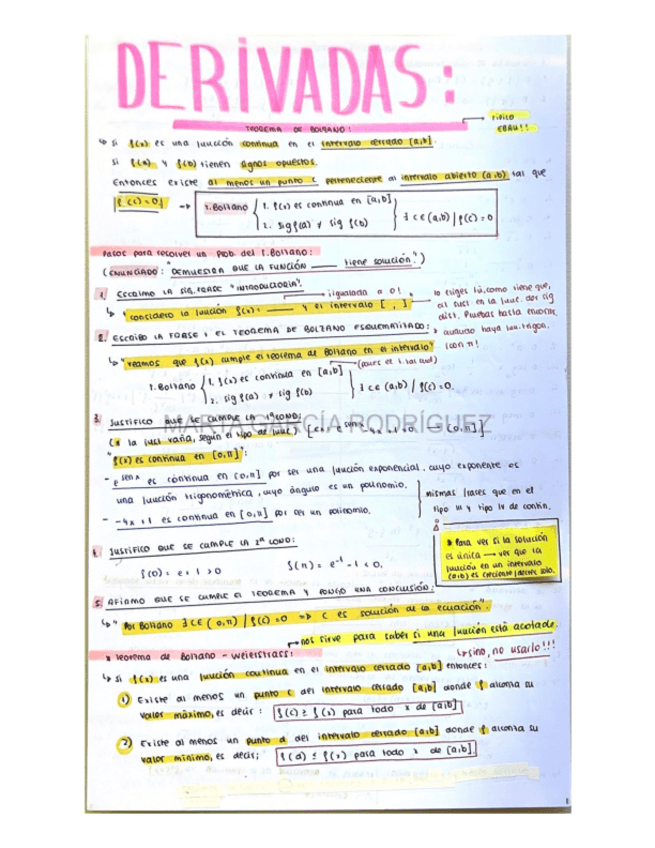 DERIVADAS:
TEOREMA DE BOLZANO:
TÍPICO
EBAU!!
↳ Si f(x) es una función continua en el intervalo cerrado [a,b].
Si f(a) y f(b) tienen signos opuestos.
Entonces existe al menos un punto c perteneciente al intervalo abierto (a,b) tal que
f(c)=0 → T.Bolzano { 1. f(x) es continua en [a,b]
2. sig f(a) ≠ sig f(b) } ∃ c ∈ (a,b) / f(c)=0
Pasos para resolver un prob. del T.Bolzano:
(ENUNCIADO: "DEMUESTRA QUE LA FUNCIÓN ____ tiene solución.")
1. ESCRIBO LA SIG. FRASE "INTRODUCTORIA".
igualada a 0!
↳ "Considero la función f(x)= ____ y el intervalo [ , ]"
lo eliges tú, como tiene que,
al sust en la func. dar sig
dist. Pruebas hasta encontr.
2. ESCRIBO LA FRASE + EL TEOREMA DE BOLZANO ESQUEMATIZADO:
cuando haya func. trigon.
con π!
↳ "Veamos que f(x) cumple el teorema de Bolzano en el intervalo"
(pones el i. tal cual)
T.Bolzano { 1. f(x) es continua en [a,b]
2. sig f(a) ≠ sig f(b) } ∃ c ∈ (a,b) / f(c)=0.
3. JUSTIFICO QUE SE CUMPLE LA 1ª COND:
MARTA GARCÍA RODRÍGUEZ
(* la just varía, según el tipo de func.) [ex, e^sen x - 4x + 1 = 0 [0,π]]
"f(x) es continua en [0,π]":
- e^sen x es continua en [0,π] por ser una función exponencial, cuyo exponente es
una función trigonométrica, cuyo ángulo es un polinomio.
- -4x+1 es continua en [0,π] por ser un polinomio.
mismas frases que en el
tipo III y tipo IV de contin.
4. JUSTIFICO QUE SE CUMPLE LA 2ª COND:
f(0) = e + 1 > 0 f(π) = e^-1 - 1 < 0.
* Para ver si la solución
es única → ver que la
función en un intervalo
(a,b) es creciente / decrec solo.
5. AFIRMO QUE SE CUMPLE EL TEOREMA Y PONGO UNA CONCLUSIÓN:
↳ "Por Bolzano ∃ c ∈ (0,π) / f(c)=0 => c es solución de la ecuación".
→ nos sirve para saber si una función está acotada.
* Teorema de Bolzano - Weierstrass:
↳ sino, no usarlo!!!
↳ Si f(x) es una función continua en el intervalo cerrado [a,b] entonces:
1) Existe al menos un punto c del intervalo cerrado [a,b] donde f alcanza su
valor máximo, es decir: f(c) ≥ f(x) para todo x de [a,b]
2) Existe al menos un punto d del intervalo cerrado [a,b] donde f alcanza su
valor mínimo, es decir; f(d) ≤ f(x) para todo x de [a,b].